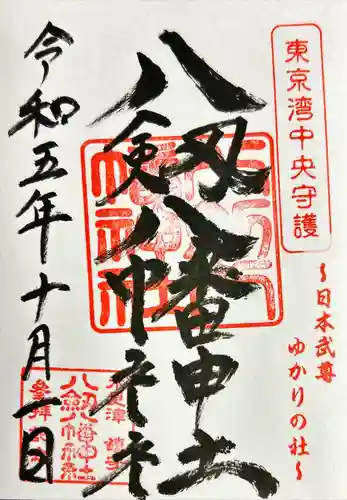 東京湾中央守護
～日本武尊
ゆかりの社～
八剱八幡神社
令和五年十月一日
八剱八幡神社
参拝